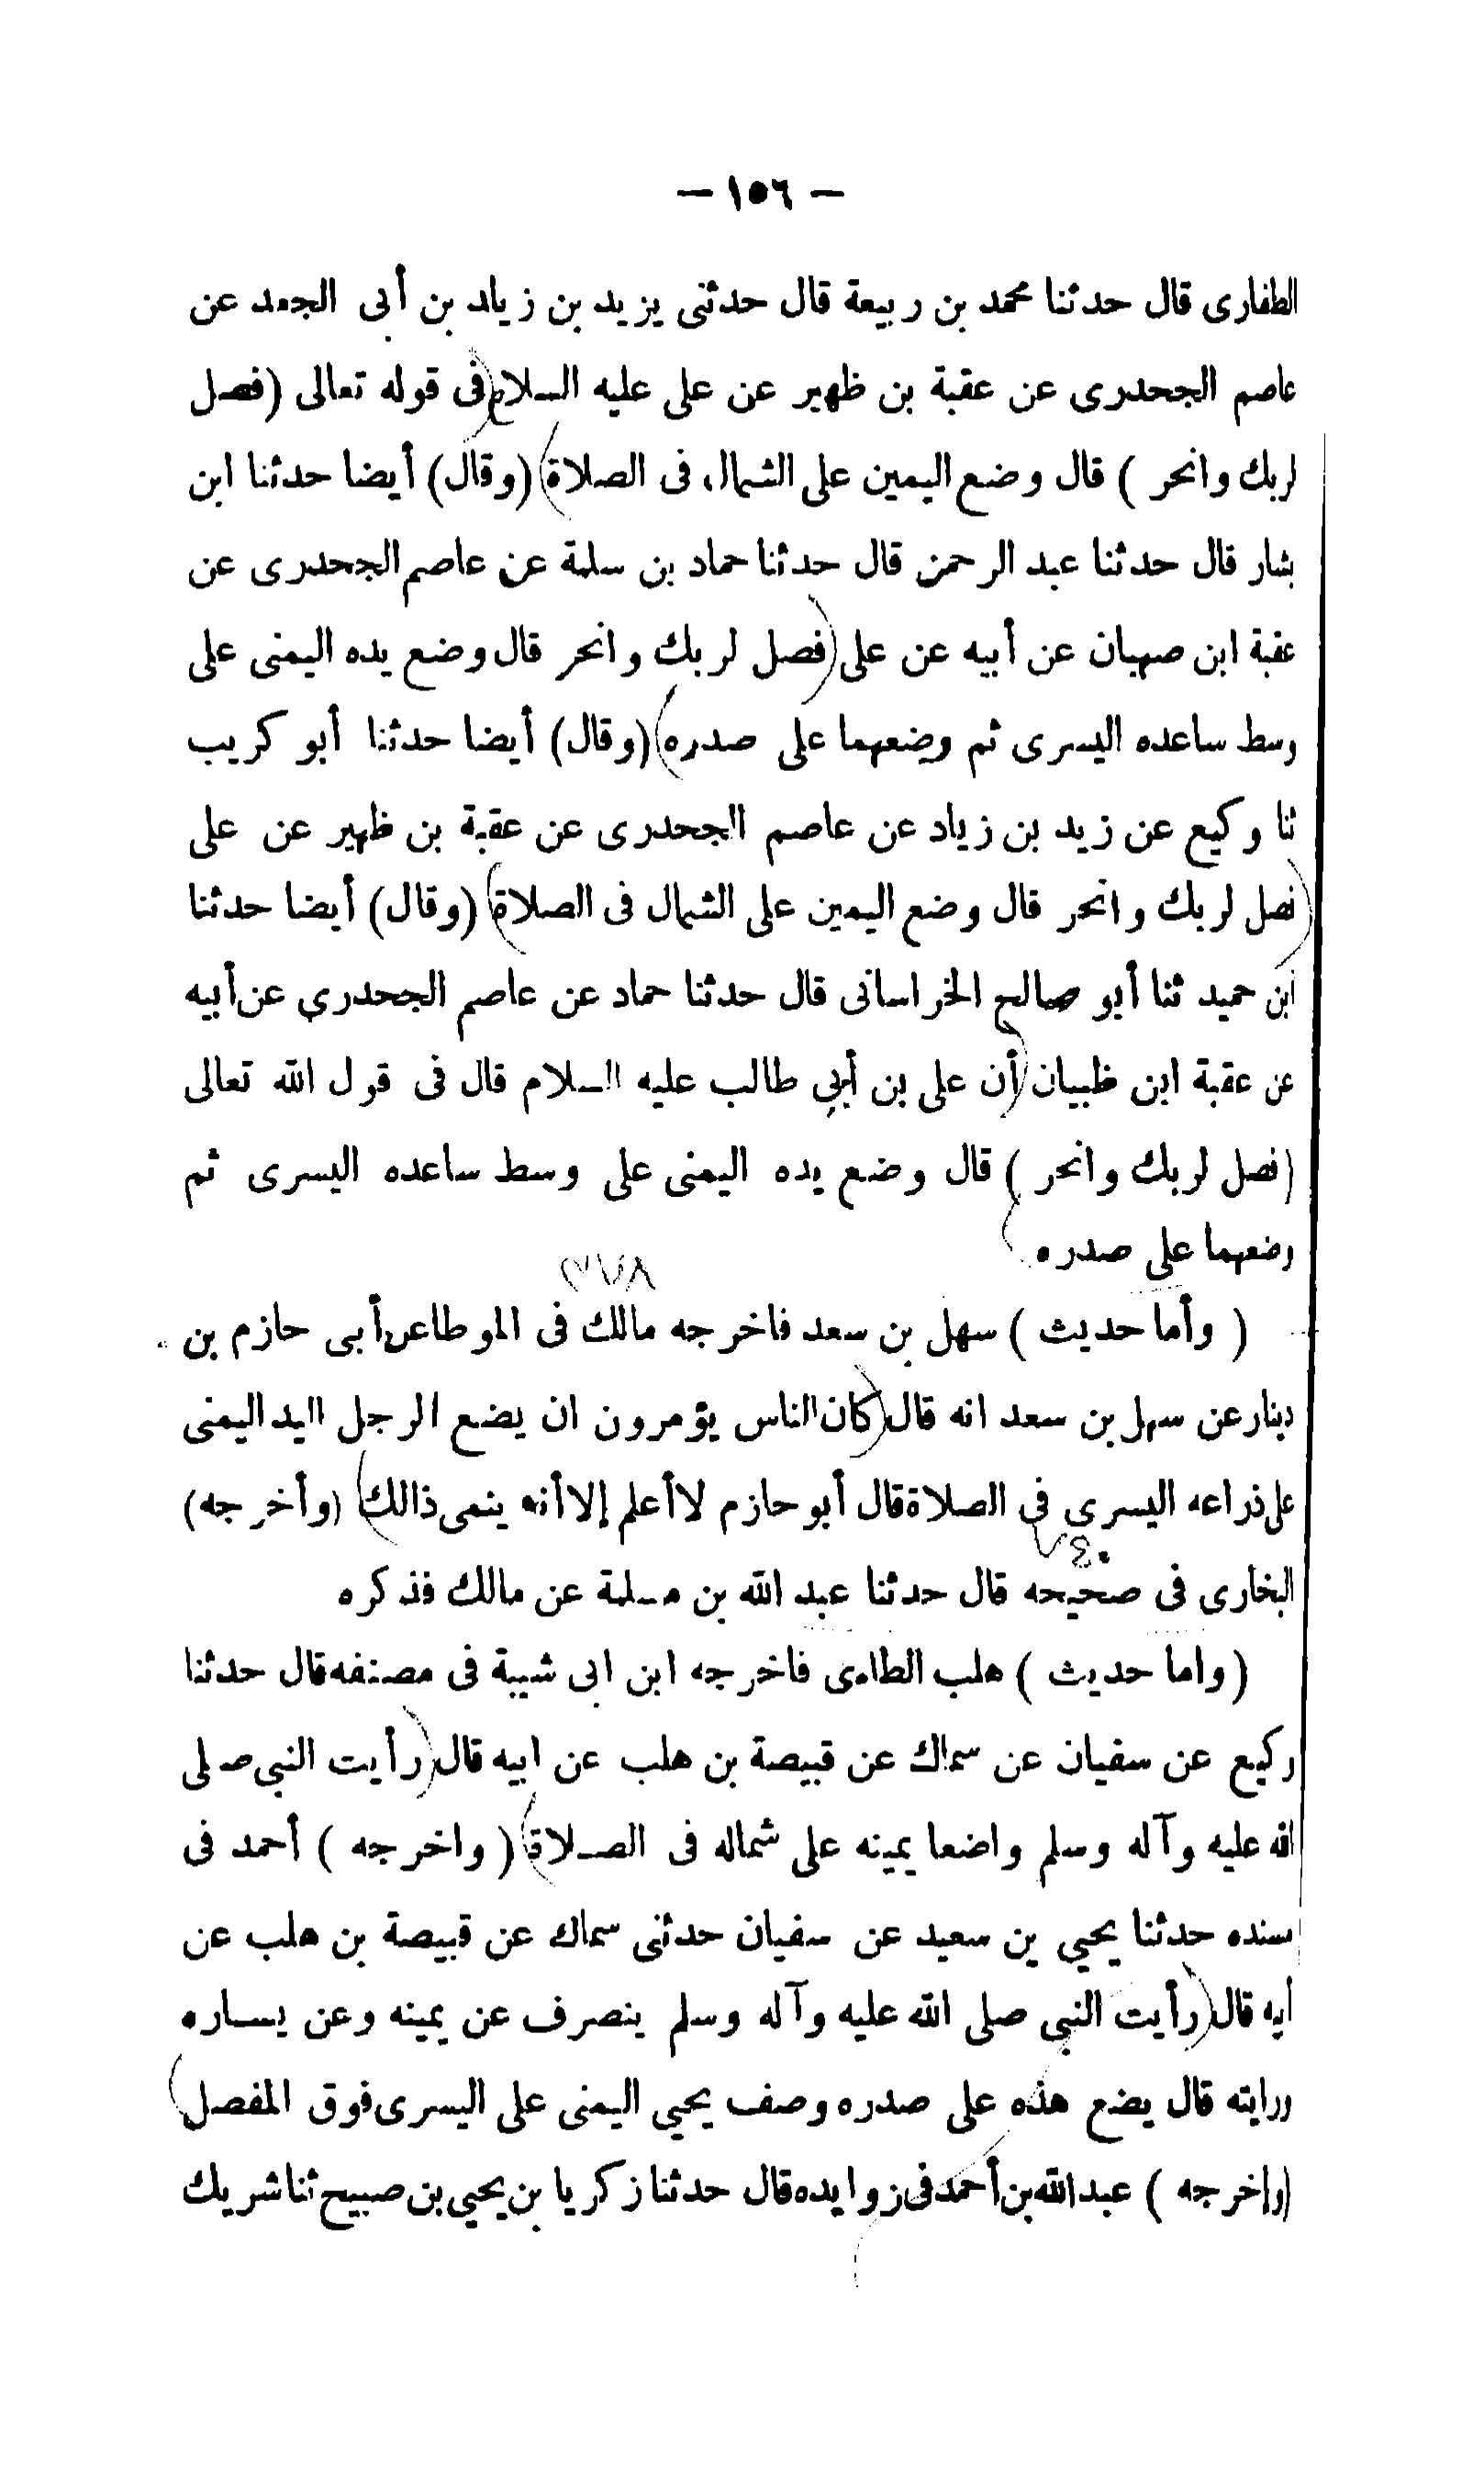 — ١٥٦ —
الطفارى قال حدثنا محمد بن ربيعة قال حدثنى يزيد بن زياد بن أبى الجعد عن
عاصم الجحدرى عن عقبة بن ظهير عن على عليه السلام فى قوله تعالى (فصل
لربك وانحر ) قال وضع اليمين على الشمال فى الصلاة (وقال) أيضا حدثنا ابن
بشار قال حدثنا عبد الرحمن قال حدثنا حماد بن سلمة عن عاصم الجحدرى عن
عقبة ابن صهبان عن أبيه عن على (فصل لربك وانحر قال وضع يده اليمنى على
وسط ساعده اليسرى ثم وضعهما على صدره) (وقال) أيضا حدثنا أبو كريب
ثنا وكيع عن زيد بن زياد عن عاصم الجحدرى عن عقبة بن ظهير عن على
(فصل لربك وانحر قال وضع اليمين على الشمال فى الصلاة) (وقال) أيضا حدثنا
ابن حميد ثنا أبو صالح الخراسانى قال حدثنا حماد عن عاصم الجحدرى عن أبيه
عن عقبة ابن ظبيان (أن على بن أبي طالب عليه السلام قال فى قول الله تعالى
(فصل لربك وانحر ) قال وضع يده اليمنى على وسط ساعده اليسرى ثم
وضعهما على صدره
٣٧٨
( وأما حديث ) سهل بن سعد فاخرجه مالك فى الموطا عن أبى حازم بن
دينار عن سهل بن سعد انه قال (كان الناس يؤمرون ان يضع الرجل اليد اليمنى
على ذراعه اليسرى فى الصلاة قال أبو حازم لا أعلم إلا أنه ينمى ذالك) (وأخرجه)
٧٤٠
البخارى فى صحيحه قال حدثنا عبد الله بن مسلمة عن مالك فذكره
( واما حديث ) هلب الطاءى فاخرجه ابن ابى شيبة فى مصنفه قال حدثنا
وكيع عن سفيان عن سماك عن قبيصة بن هلب عن ابيه قال (رأيت النبى صلى
الله عليه وآله وسلم واضعا يمينه على شماله فى الصلاة) ( واخرجه ) أحمد فى
مسنده حدثنا يحيى بن سعيد عن سفيان حدثنى سماك عن قبيصة بن هلب عن
أبيه قال (رأيت النبى صلى الله عليه وآله وسلم ينصرف عن يمينه وعن يساره
ورايته قال يضع هذه على صدره وصف يحيي اليمنى على اليسرى فوق المفصل)
(واخرجه ) عبد الله بن أحمد فى زوايده قال حدثنا زكريا بن يحيي بن صبيح ثنا شريك